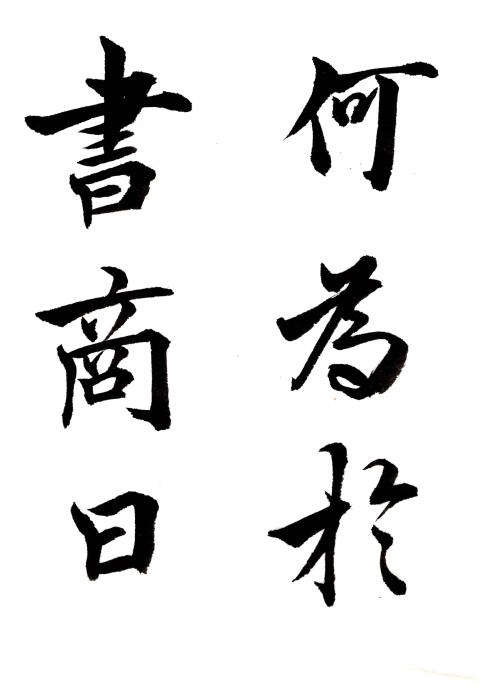 何為於
書商曰